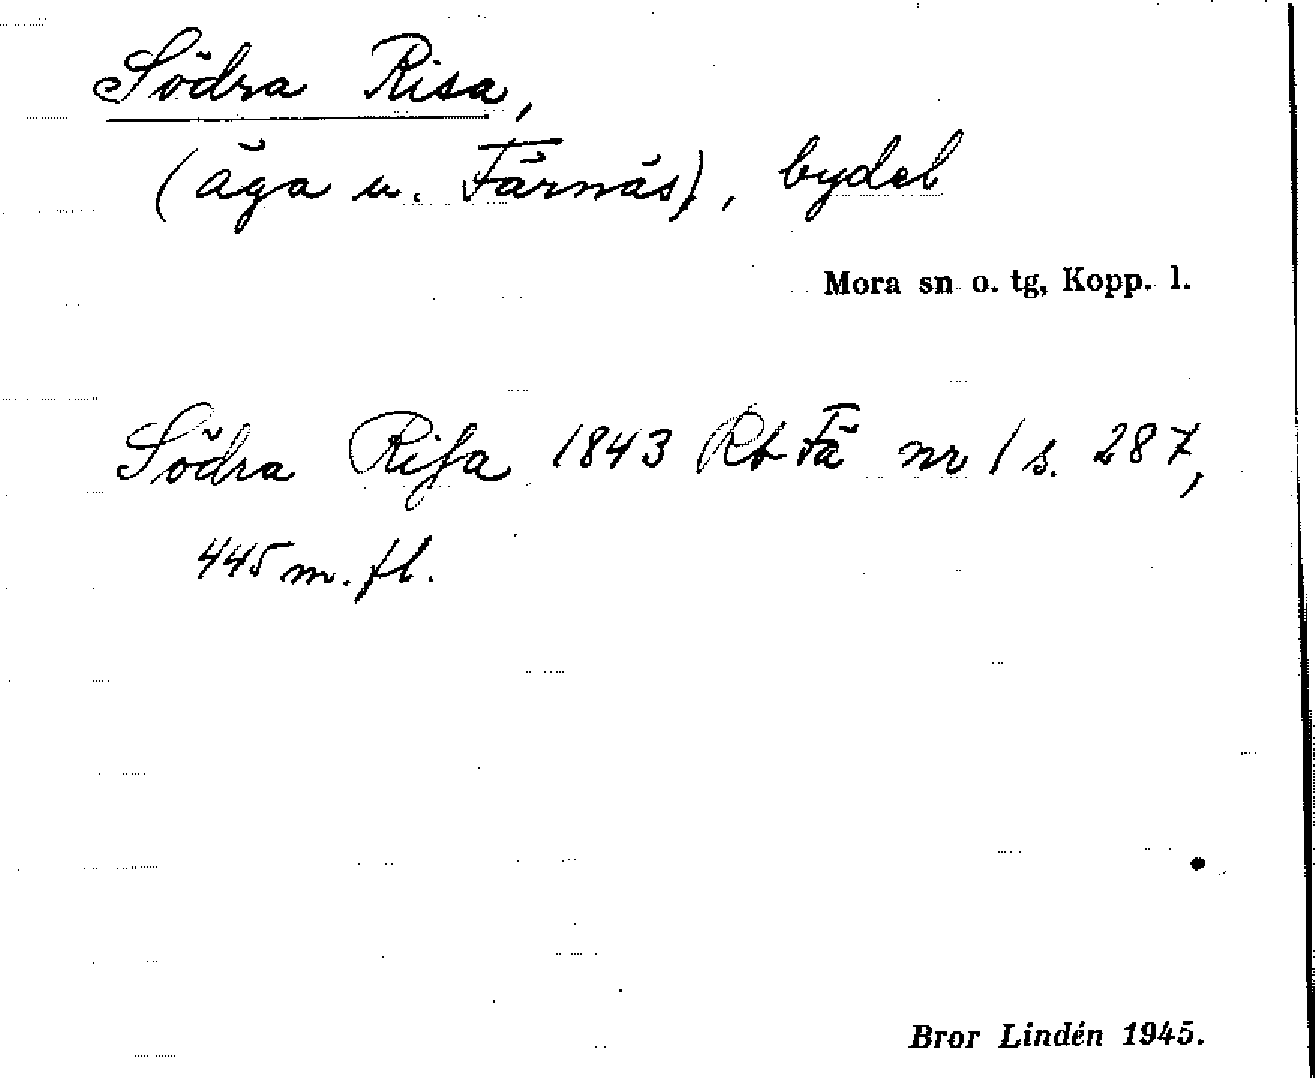 Södra Risa,
(äga u. Färnäs), bydel
Mora sn o. tg, Kopp. l.
Södra Risa 1843 Rt Fä nr 1 s. 287,
445 m. fl.
Bror Lindén 1945.